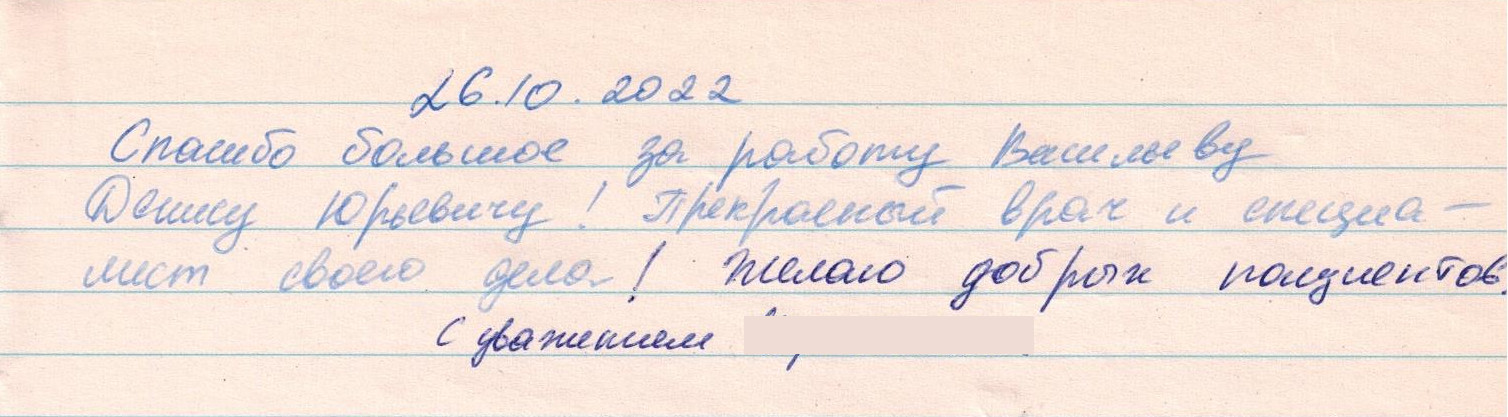 26.10.2022
Спасибо большое за работу Васильеву
Денису Юрьевичу! Прекрасный врач и специа-
лист своего дела! Желаю добрых пациентов.
С уважением